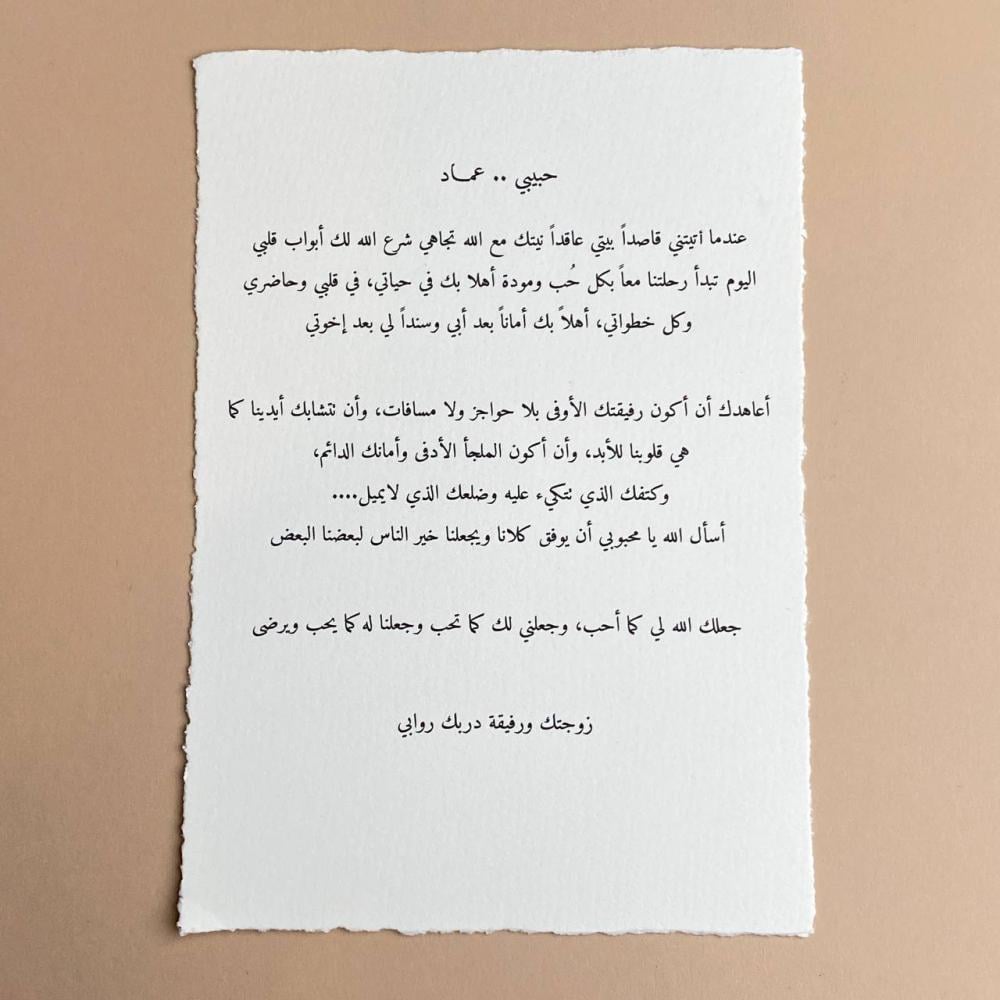 حبيبي .. عمـاد
عندما أتيتني قاصداً بيتي عاقداً نيتك مع الله تجاهي شرع الله لك أبواب قلبي
اليوم تبدأ رحلتنا معاً بكل حُب ومودة أهلا بك في حياتي، في قلبي وحاضري
وكل خطواتي، أهلاً بك أماناً بعد أبي وسنداً لي بعد إخوتي
أعاهدك أن أكون رفيقتك الأوفى بلا حواجز ولا مسافات، وأن نتشابك أيدينا كما
هي قلوبنا للأبد، وأن أكون الملجأ الأدفى وأمانك الدائم،
وكتفك الذي نتكيء عليه وضلعك الذي لايميل....
أسأل الله يا محبوبي أن يوفق كلانا ويجعلنا خير الناس لبعضنا البعض
جعلك الله لي كما أحب، وجعلني لك كما تحب وجعلنا له كما يحب ويرضى
زوجتك ورفيقة دربك روابي